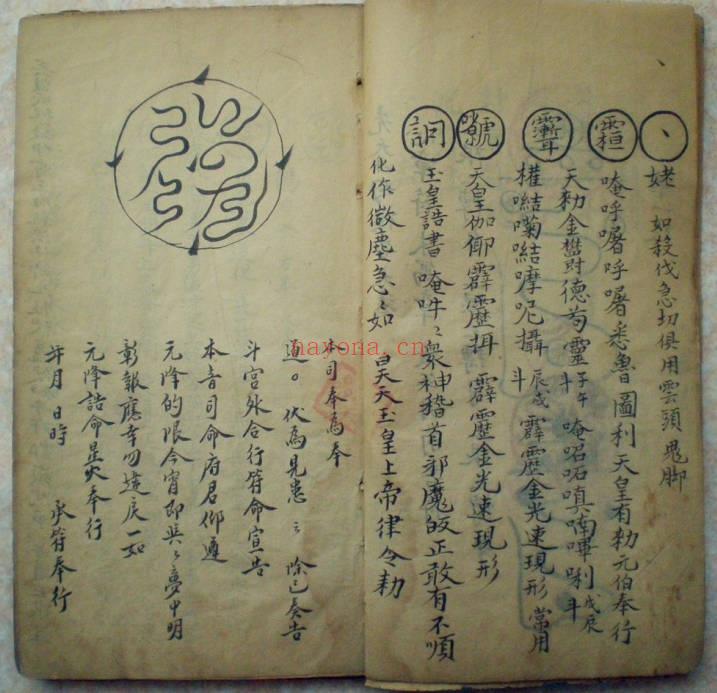 如殺伐急切俱用雲頭鬼脚
、 姥
唵呼㘄呼㘄悉魯圖利 天皇有勅元伯奉行
天勅金 德 靈 子午斗 唵 㗌 唎 戌辰斗
攝 辰戌斗 霹靂金光速現形 常用
號 天皇 霹靂 霹靂金光速現形
詞 玉皇誥書 唵吽〻衆神稽首邪魔皈正敢有不順
化作微塵急〻如 昊天玉皇上帝律令勅
本司奉爲奉
道。伏爲見患 〻 除已奏告
斗宮外合行符命宣告
本音司命府君仰遵
元降的限今宵即與〻夢中明
彰報應幸勿違戾一如
元降誥命星火奉行
年月日時 承符奉行
nayona.cn